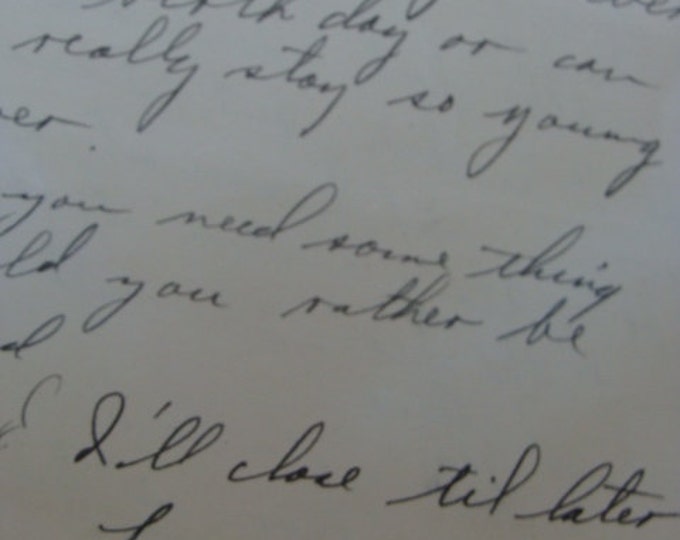 day or can
really stay so young
er.
you need some thing
ld you rather be
I'll close 'til later